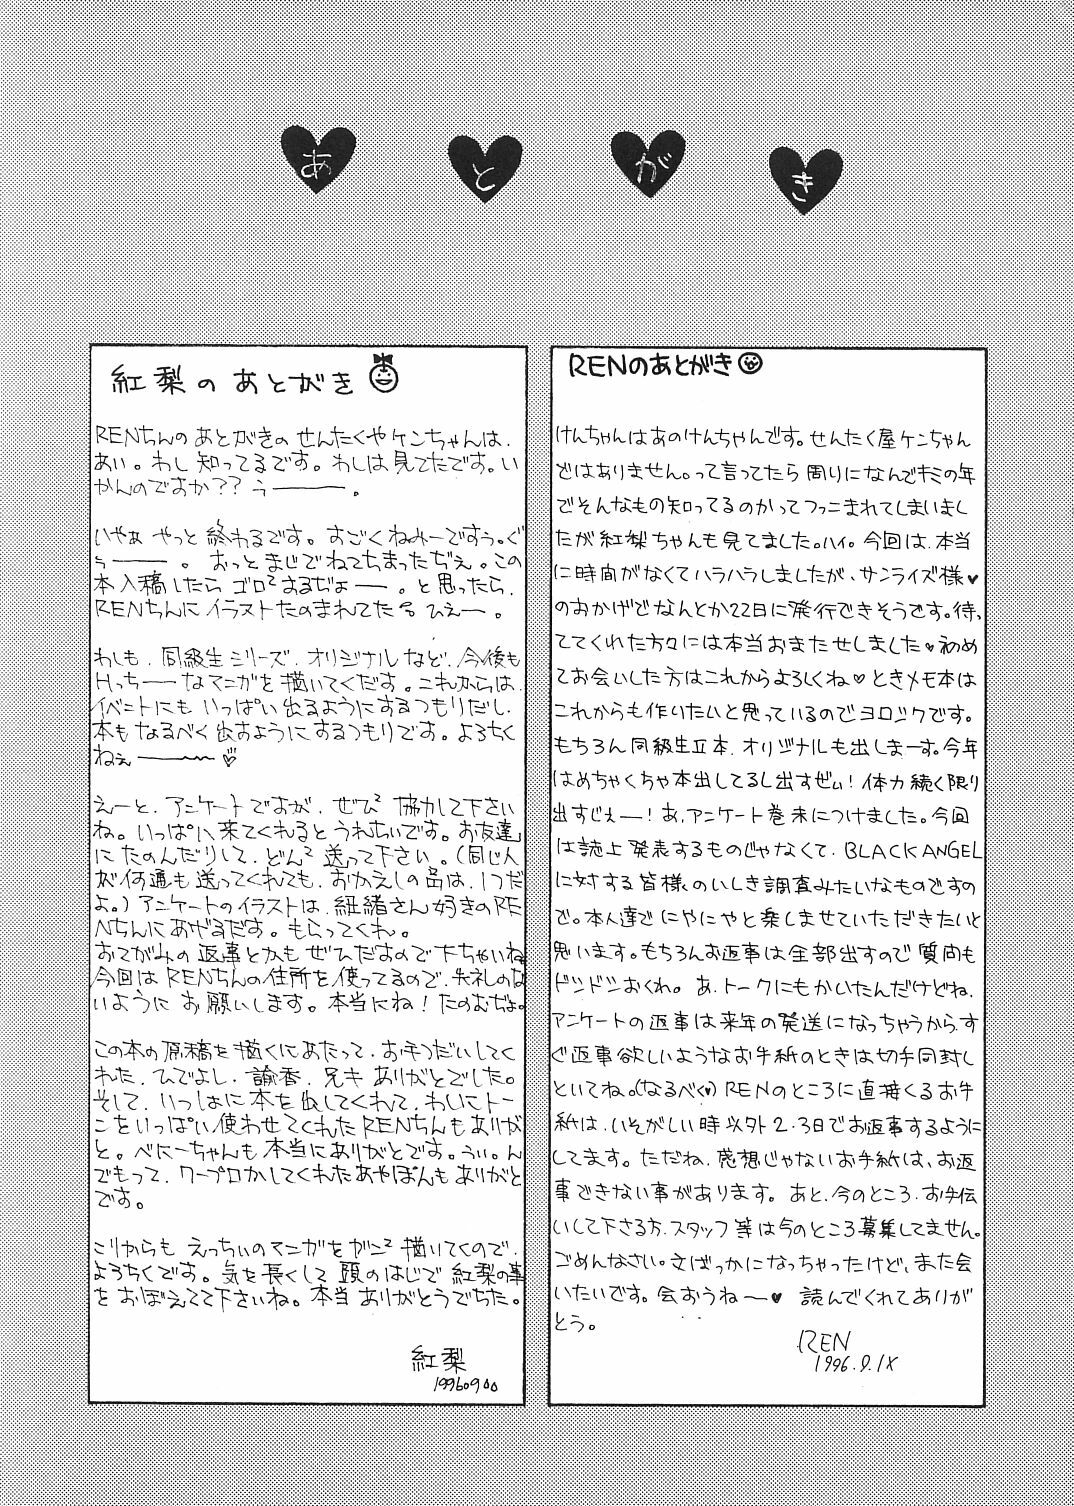 あとがき
紅梨のあとがき
RENちんのあとがきのせんたくやケンちゃんは、
あい。わし知ってるです。わしは見てたです。い
かんのですか??ぅ———。
いやぁやっと終わるです。すごくねみーですぅ。ぐ
ぅ———。おっとまじでねてちまったぢぇ。この
本入稿したらゴロ²するぢょ——。と思ったら、
RENちんにイラストたのまれてた ひぇー。
わしも、同級生シリーズ、オリジナルなど、今後も
Hっちーなマンガを描いてくだす。これからは、
イベントにもいっぱい出るようにするつもりだし、
本もなるべく出すようにするつもりです。よろちく
ねぇ———♡
えーと、アンケートですが、ぜひ²協力して下さい
ね。いっぱい来てくれるとうれちいです。お友達
にたのんだりして、どん²送って下さい。(同じ人
が何通も送ってくれても、おかえしの品は、1つだ
よ。)アンケートのイラストは、紐緒さん好きのRE
Nちんにあげるだす。もらってくれ。
おてがみの返事とかもぜひだすので下ちゃいね
今回はRENちんの住所を使ってるので、失礼のな
いようにお願いします。本当にね!たのむぢょ。
この本の原稿を描くにあたって、お手つだいしてく
れた、ひでよし、諭香、兄キありがとでした。
そして、いっしょに本を出してくれて、わしにトー
ンをいっぱい使わせてくれたRENちんもありが
と。べにーちゃんも本当にありがとです。うぃ。ん
でもって、ワープロかしてくれたあやぽんもありがと
です。
これからもえっちぃのマンガをガン²描いてくので、
よろちくです。気を長くして頭のはじで紅梨の事
をおぼえてて下さいね。本当ありがとうでちた。
紅梨
199609
RENのあとがき
けんちゃんはあのけんちゃんです。せんたく屋ケンちゃん
ではありません。って言ってたら周りになんでキミの年
でそんなもの知ってるのかってツッこまれてしまいまし
たが紅梨ちゃんも見てました。ハイ。今回は、本当
に時間がなくてハラハラしましたが、サンライズ様♥
のおかげでなんとか22日に発行できそうです。待っ
ててくれた方々には本当おまたせしました♥初めて
お会いした方はこれからよろしくね♥ときメモ本は
これからも作りたいと思っているのでヨロシクです。
もちろん同級生Ⅱ本、オリジナルも出しまーす。今年
はめちゃくちゃ本出してるし出すぜぃ!体力続く限り
出すじぇー!あ,アンケート巻末につけました。今回
は誌上発表するものじゃなくて、BLACK ANGEL
に対する皆様のいしき調査みたいなものですの
で。本人達でにやにやと楽しませていただきたいと
思います。もちろんお返事は全部出すので質問も
ドンドンおくれ。あ、トークにもかいたんだけどね、
アンケートの返事は来年の発送になっちゃうから、す
ぐ返事欲しいようなお手紙のときは切手同封し
といてね。(なるべく♥)RENのところに直接くるお手
紙は、いそがしい時以外2・3日でお返事するように
してます。ただね、感想じゃないお手紙は、お返
事できない事があります。あと、今のところ、お手伝
いして下さる方、スタッフ等は今のところ募集してません。
ごめんなさい。文ばっかになっちゃったけど、また会
いたいです。会おうね〜♥ 読んでくれてありが
とう。
REN
1996.9.1X